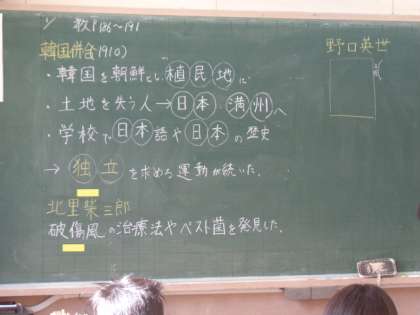 教P186〜191
韓国併合(1910)
・韓国を朝鮮とし植民地に
・土地を失う人→日本・満州へ
・学校で日本語や日本の歴史
→独立を求める運動が続いた。
北里柴三郎
破傷風の治療法やペスト菌を発見した。
野口英世